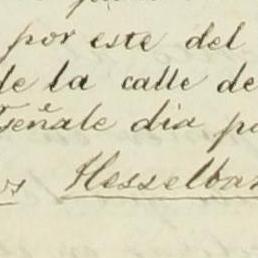 por este del
de la calle de
señale dia po
os Hesselba